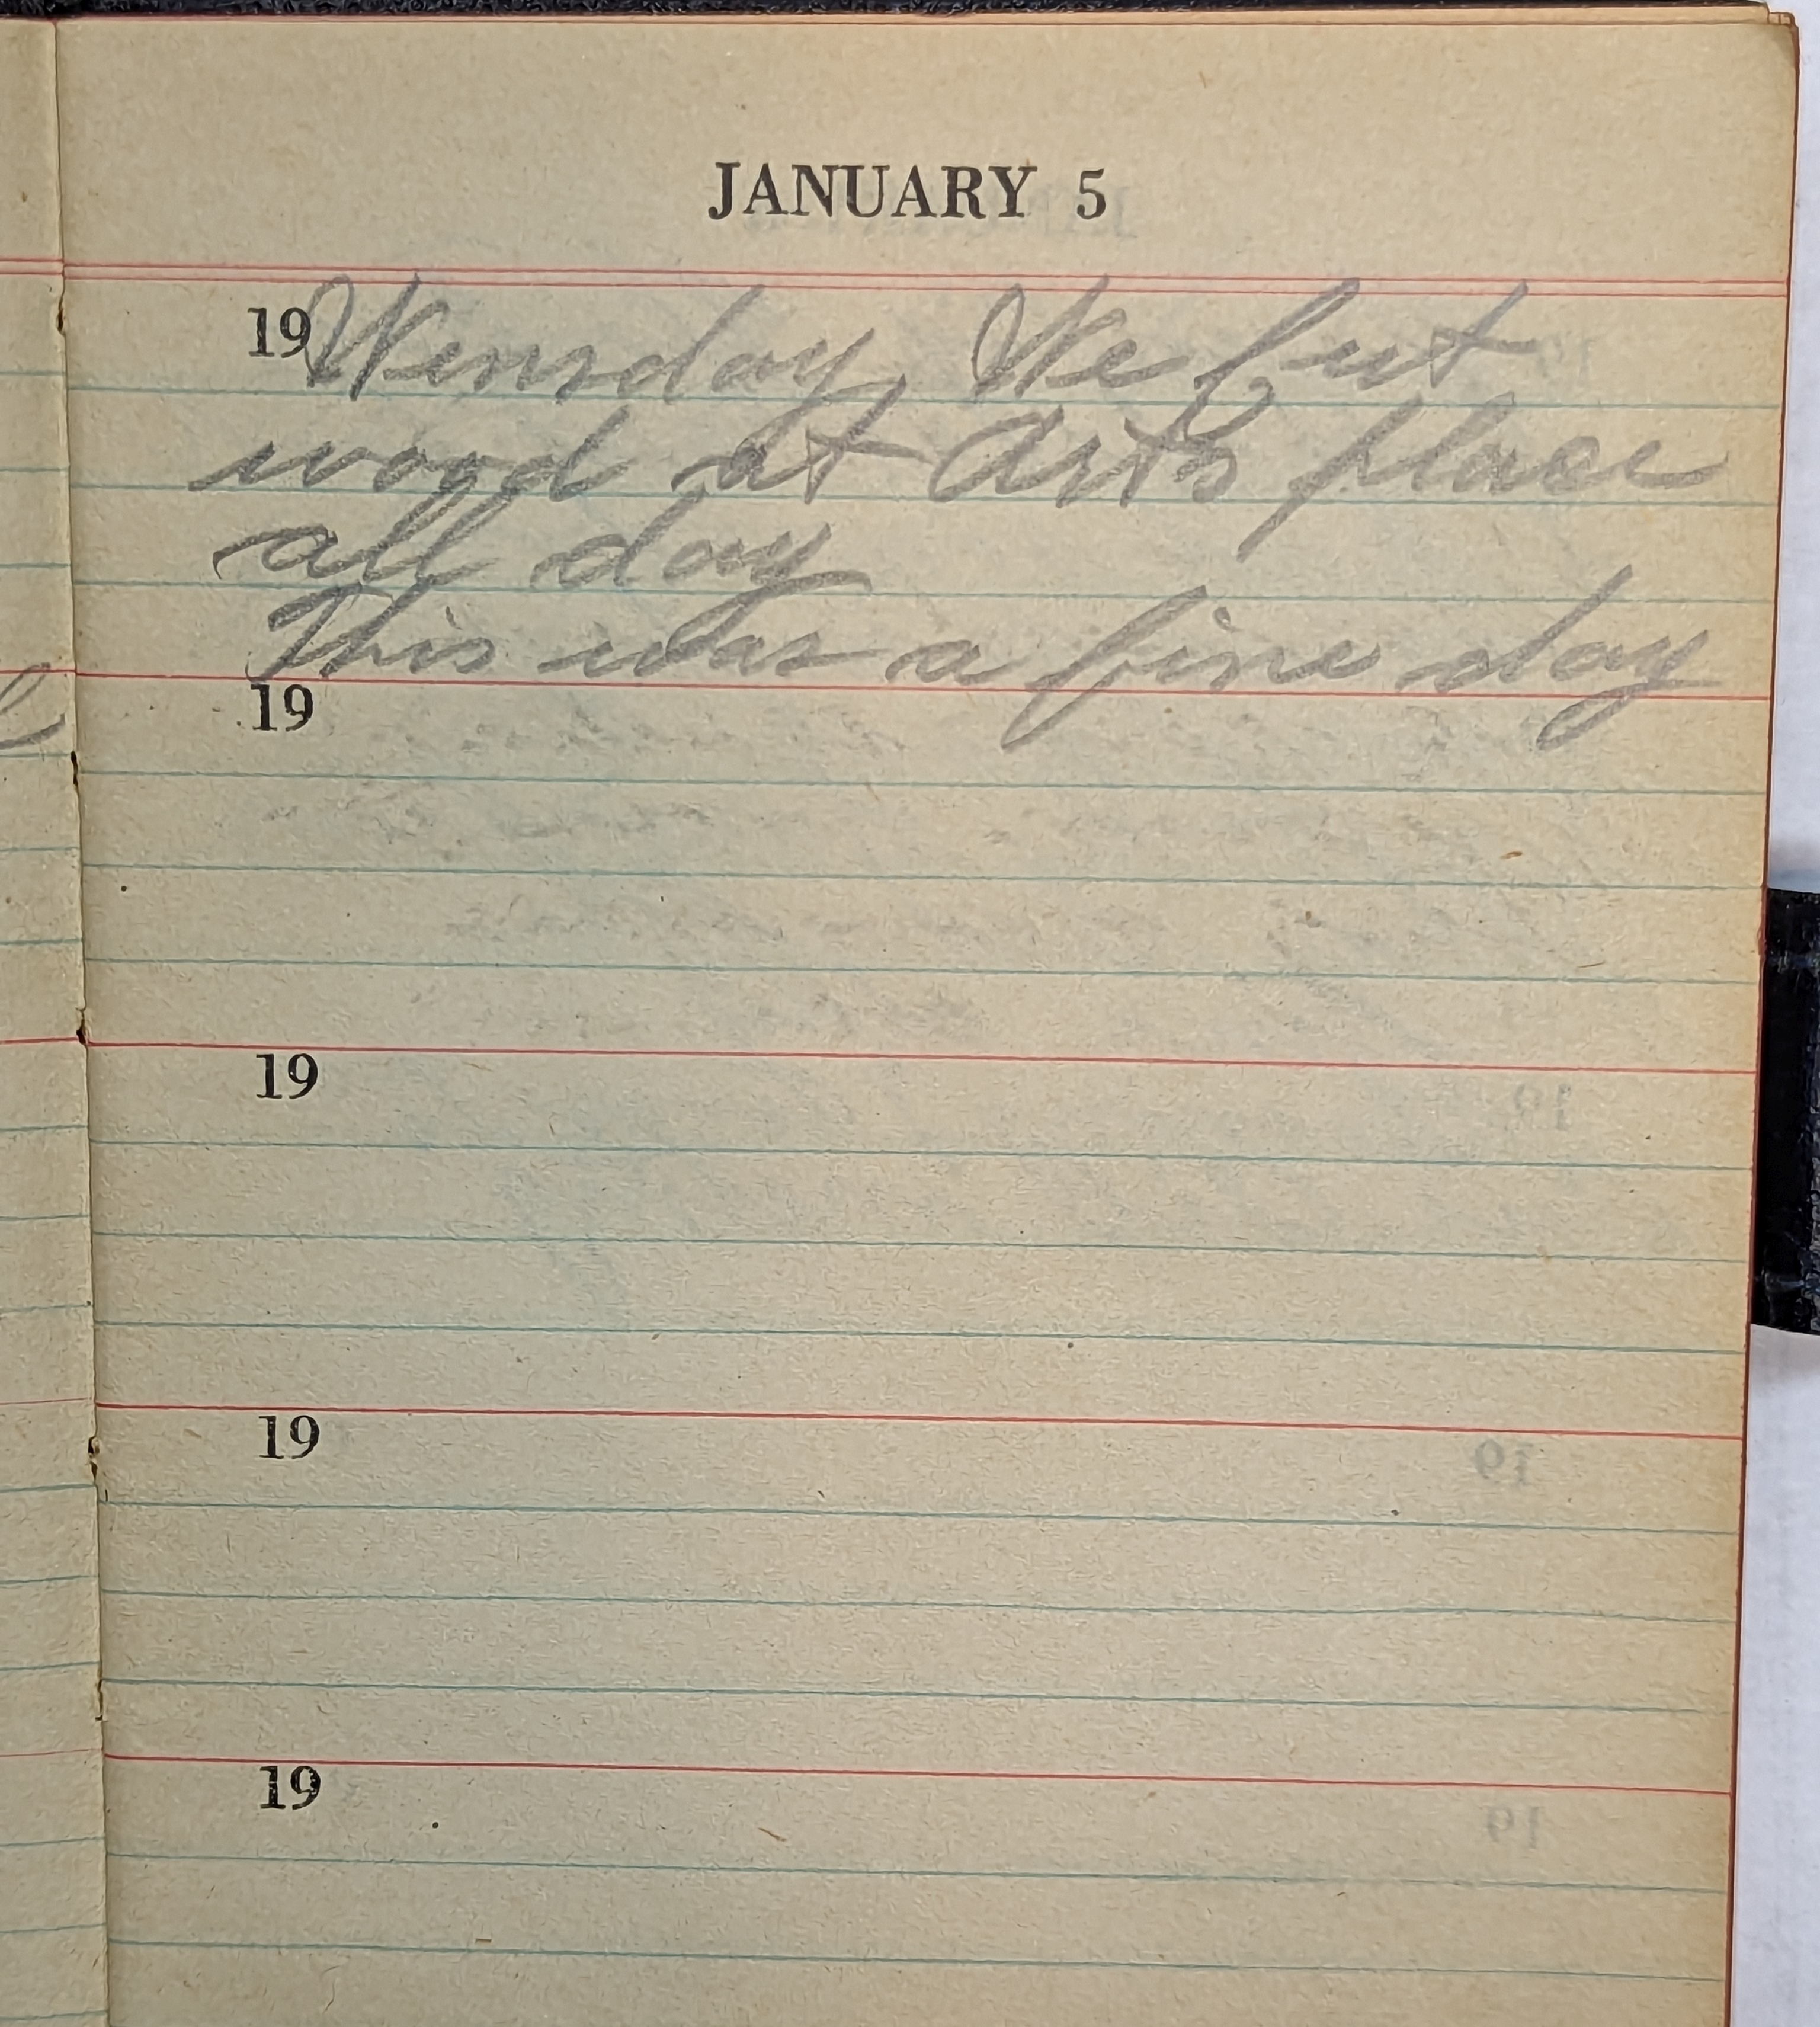 JANUARY 5
19 Wensday We cut
wood at Arts place
all day
This was a fine day
19
19
19
19